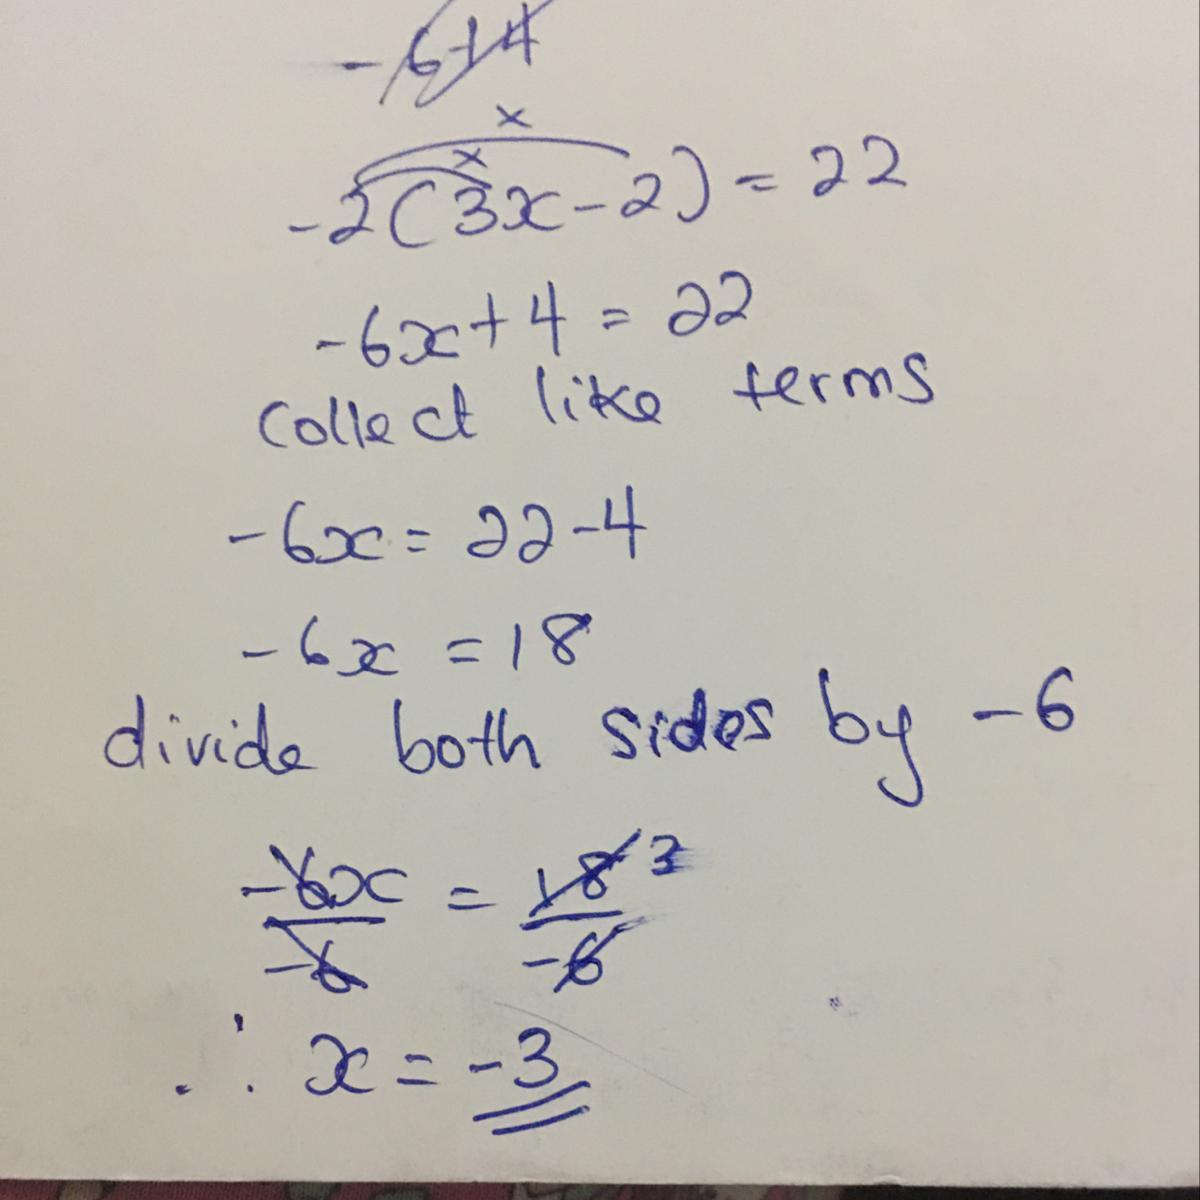 -6+4
x
x
-2(3x-2)=22
-6x+4=22
collect like terms
-6x=22-4
-6x=18
divide both sides by -6
-6x = 18 3
-6 -6
∴ x=-3